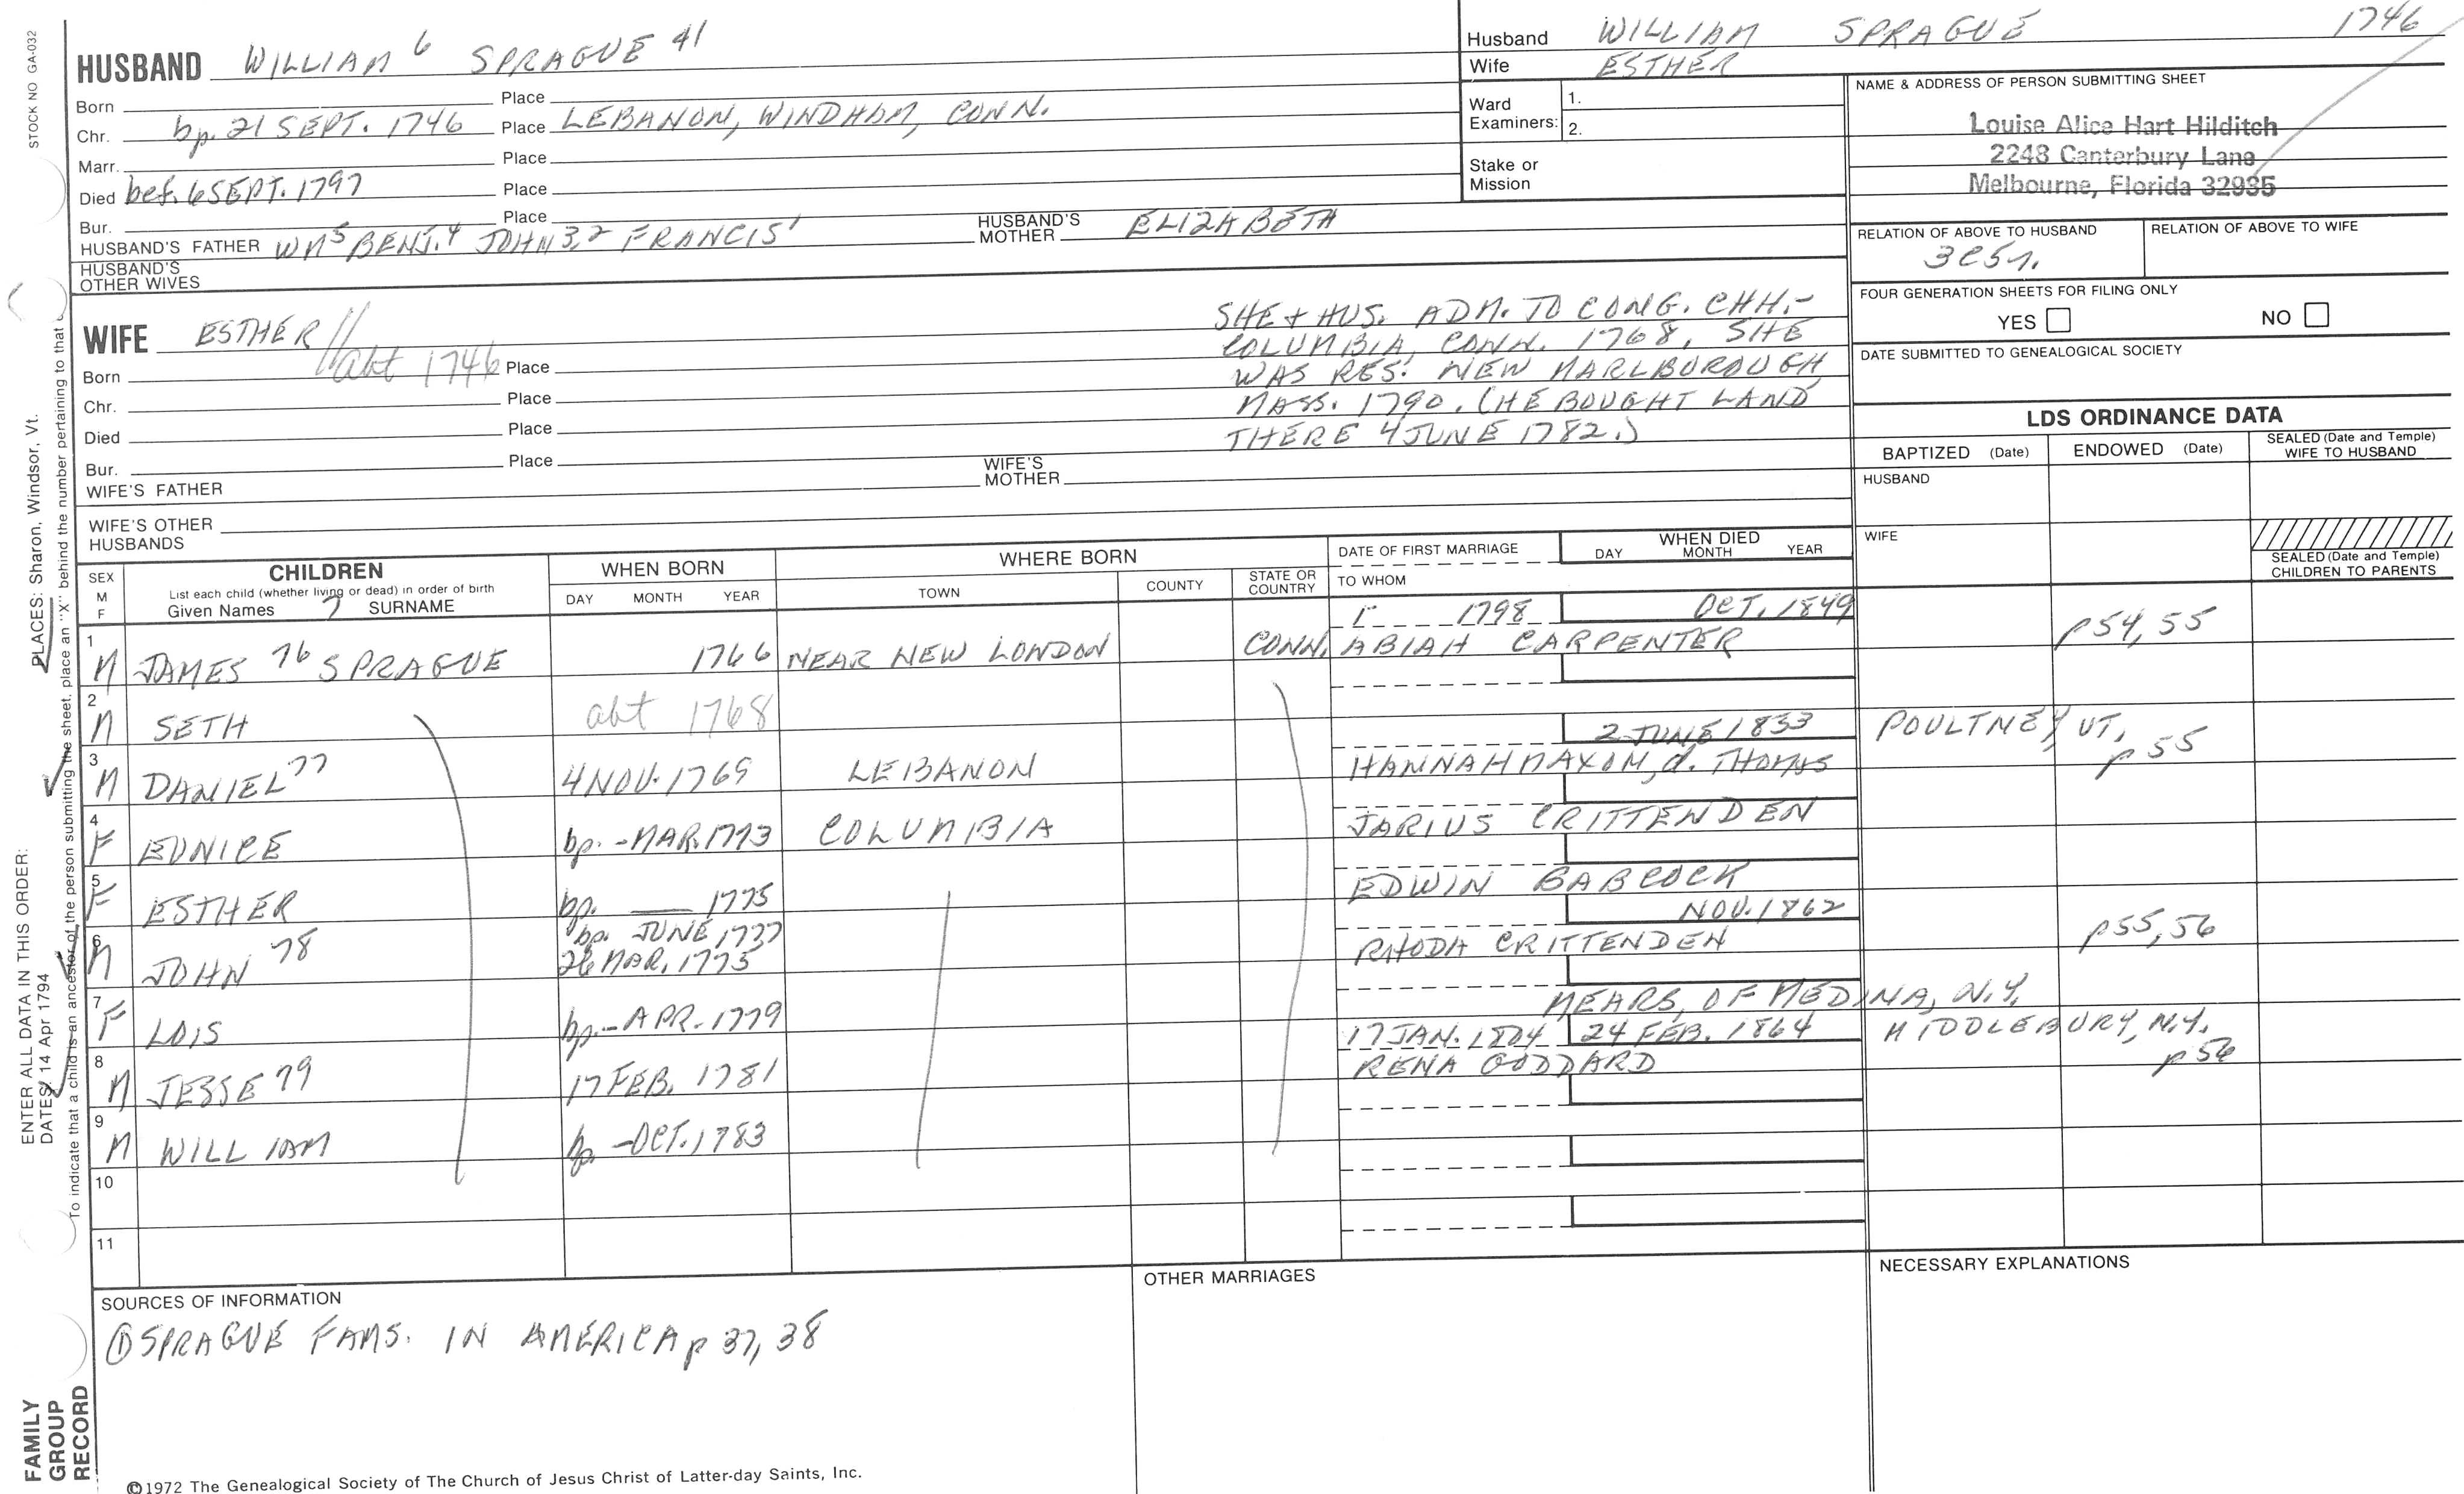 STOCK NO GA-032
HUSBAND WILLIAM 6 SPRAGUE 41
Born Place
Chr. bp. 21 SEPT. 1746 Place LEBANON, WINDHAM, CONN.
Marr. Place
Died bef. 6 SEPT. 1797 Place
Bur. Place
HUSBAND'S FATHER WM5 BENJ.4 JOHN3,2 FRANCIS1 HUSBAND'S MOTHER ELIZABETH
HUSBAND'S OTHER WIVES
Husband WILLIAM SPRAGUE 1746
Wife ESTHER
Ward Examiners: 1.
2.
Stake or Mission
NAME & ADDRESS OF PERSON SUBMITTING SHEET
Louise Alice Hart Hilditch
2248 Canterbury Lane
Melbourne, Florida 32935
RELATION OF ABOVE TO HUSBAND
RELATION OF ABOVE TO WIFE
3C5r.
FOUR GENERATION SHEETS FOR FILING ONLY
YES NO
DATE SUBMITTED TO GENEALOGICAL SOCIETY
WIFE ESTHER //
Born abt 1746 Place
Chr. Place
Died Place
Bur. Place
WIFE'S FATHER WIFE'S MOTHER
WIFE'S OTHER HUSBANDS
SHE + HUS. ADM. TO CONG. CHH.-
COLUMBIA, CONN. 1768. SHE
WAS RES. NEW MARLBOROUGH
MASS. 1790. (HE BOUGHT LAND
THERE 4 JUNE 1782.)
LDS ORDINANCE DATA
BAPTIZED (Date) ENDOWED (Date) SEALED (Date and Temple) WIFE TO HUSBAND
HUSBAND
WIFE
SEALED (Date and Temple) CHILDREN TO PARENTS
SEX M F
CHILDREN
List each child (whether living or dead) in order of birth
Given Names 7 SURNAME
WHEN BORN
DAY MONTH YEAR
WHERE BORN
TOWN COUNTY STATE OR COUNTRY
DATE OF FIRST MARRIAGE
TO WHOM
WHEN DIED
DAY MONTH YEAR
1798 OCT. 1849
1 M JAMES 76 SPRAGUE 1766 NEAR NEW LONDON CONN. ABIAH CARPENTER p54, 55
2 M SETH abt 1768
2 JUNE 1833 POULTNEY, VT.
3 M DANIEL 77 4 NOV. 1769 LEBANON HANNAH MAXOM, d. THOMAS p 55
4 F EUNICE bp. - MAR. 1773 COLUMBIA JARIUS CRITTENDEN
5 F ESTHER bp. — 1775 EDWIN BABCOCK
NOV. 1862
6 M JOHN 78 bp. JUNE 1777 RHODA CRITTENDEN p55, 56
26 MAR. 1775
7 F LOIS bp. - APR. 1779 MEARS, OF MEDINA, N.Y.
17 JAN. 1804 24 FEB. 1864 MIDDLEBURY, N.Y.
8 M JESSE 79 17 FEB. 1781 RENA GODDARD p 56
9 M WILLIAM bp. - OCT. 1783
10
11
SOURCES OF INFORMATION
① SPRAGUE FAMS. IN AMERICA p 37, 38
OTHER MARRIAGES
NECESSARY EXPLANATIONS
©1972 The Genealogical Society of The Church of Jesus Christ of Latter-day Saints, Inc.
ENTER ALL DATA IN THIS ORDER:
DATES: 14 Apr 1794
PLACES: Sharon, Windsor, Vt.
To indicate that a child is an ancestor of the person submitting the sheet, place an "X" behind the number pertaining to that
FAMILY GROUP RECORD